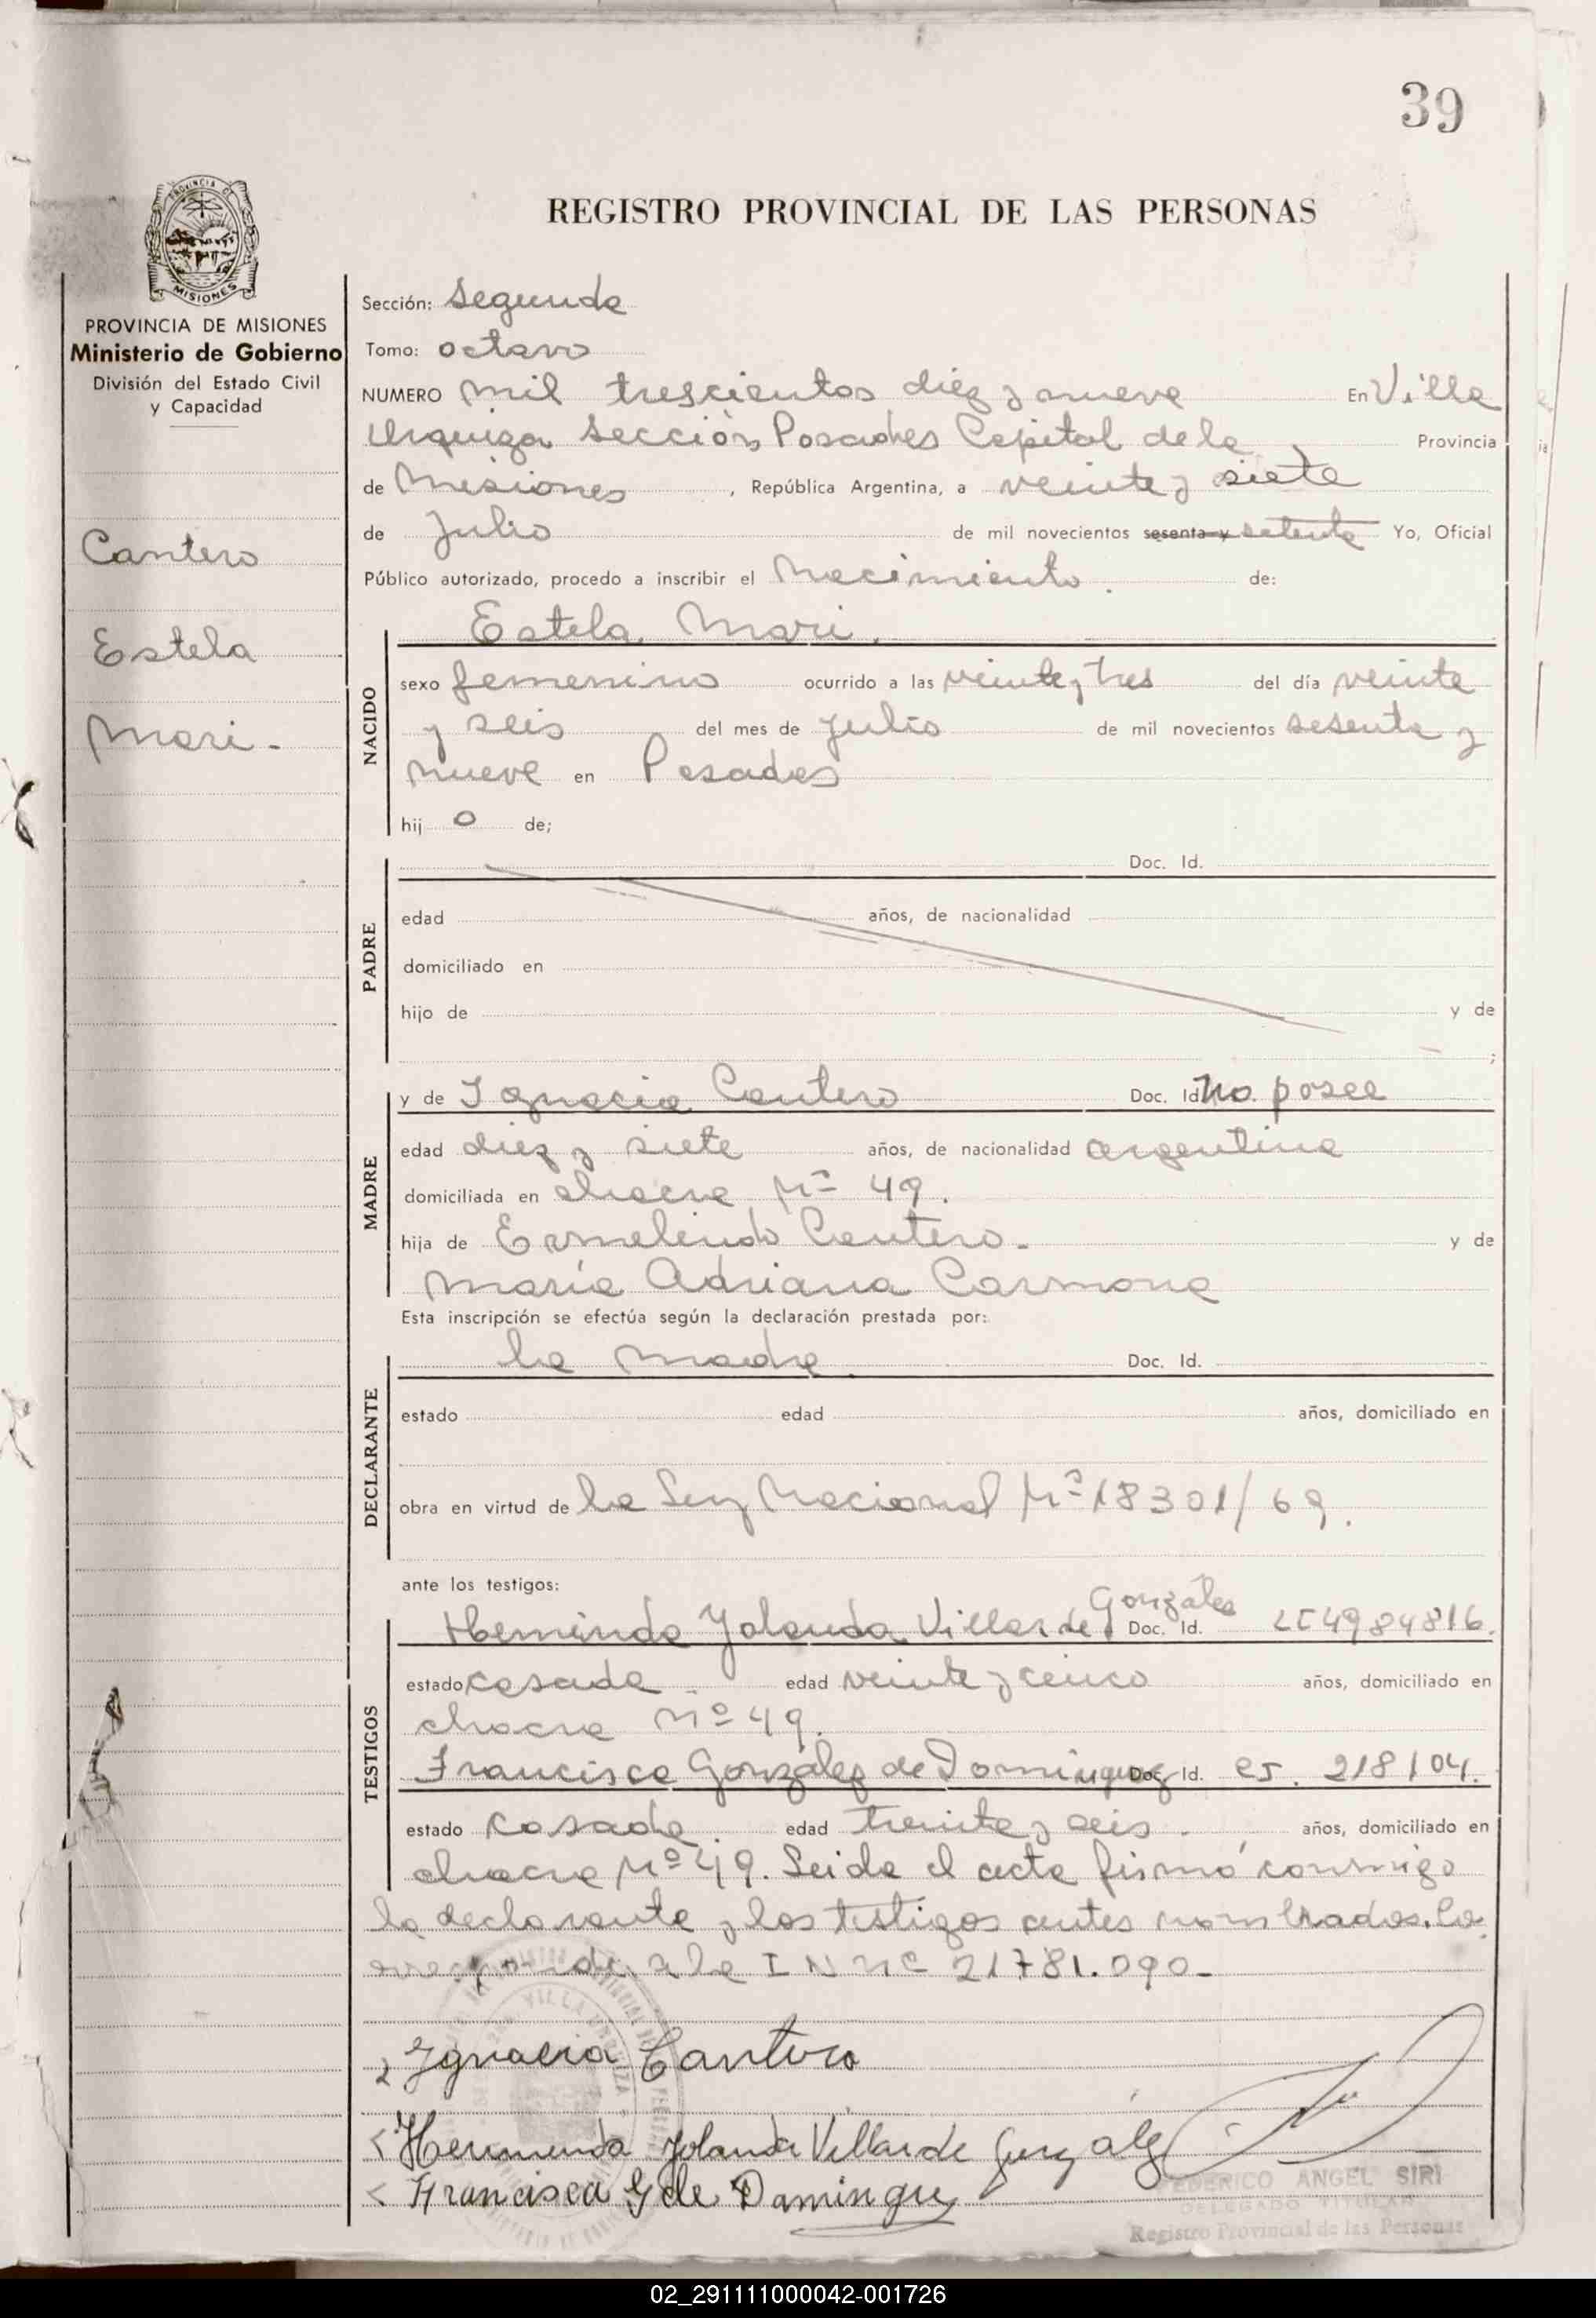 39
REGISTRO PROVINCIAL DE LAS PERSONAS
PROVINCIA DE MISIONES
PROVINCIA DE MISIONES
Ministerio de Gobierno
División del Estado Civil
y Capacidad
Cantero
Estela
Mari.-
Sección: Segunda
Tomo: octavo
NUMERO mil trescientos diez y nueve En Villa
Urquiza Sección Posadas Capital de la Provincia
de Misiones, República Argentina, a veinte y siete
de Julio de mil novecientos sesenta y setenta Yo, Oficial
Público autorizado, procedo a inscribir el Nacimiento. de:
NACIDO
Estela, Mari.
sexo femenino ocurrido a las veinte y tres del día veinte
y seis del mes de Julio de mil novecientos sesenta y
nueve en Posadas
hij o de;
PADRE
Doc. Id.
edad años, de nacionalidad
domiciliado en
hijo de y de
;
MADRE
y de Ignacia Cantero Doc. Id. No posee
edad diez y siete años, de nacionalidad argentina
domiciliada en chacra Nº 49.
hija de Ermelindo Cantero.- y de
María Adriana Carmona
Esta inscripción se efectúa según la declaración prestada por:
DECLARANTE
la madre. Doc. Id.
estado edad años, domiciliado en
obra en virtud de la Ley Nacional Nº 18301/69.
ante los testigos:
TESTIGOS
Gonzáles
Heminda Yolanda Villar de Doc. Id. 4984816.
estado casada. edad veinte y cinco años, domiciliado en
chacra Nº 49.
Francisca Gonzáles de Dominguez Doc. Id. 218104.
estado casada. edad treinta y seis. años, domiciliado en
chacra Nº 49. Leida el acta firmó conmigo
la declarante y los testigos antes nombrados. Co
rresponde a la I N Nº 21781.090.-
Ignacia Cantero
Hermeninda Yolanda Villar de Gonzalez
Francisca G de Dominguez
FEDERICO ANGEL SIRI
DELEGADO TITULAR
Registro Provincial de las Personas
02_291111000042-001726